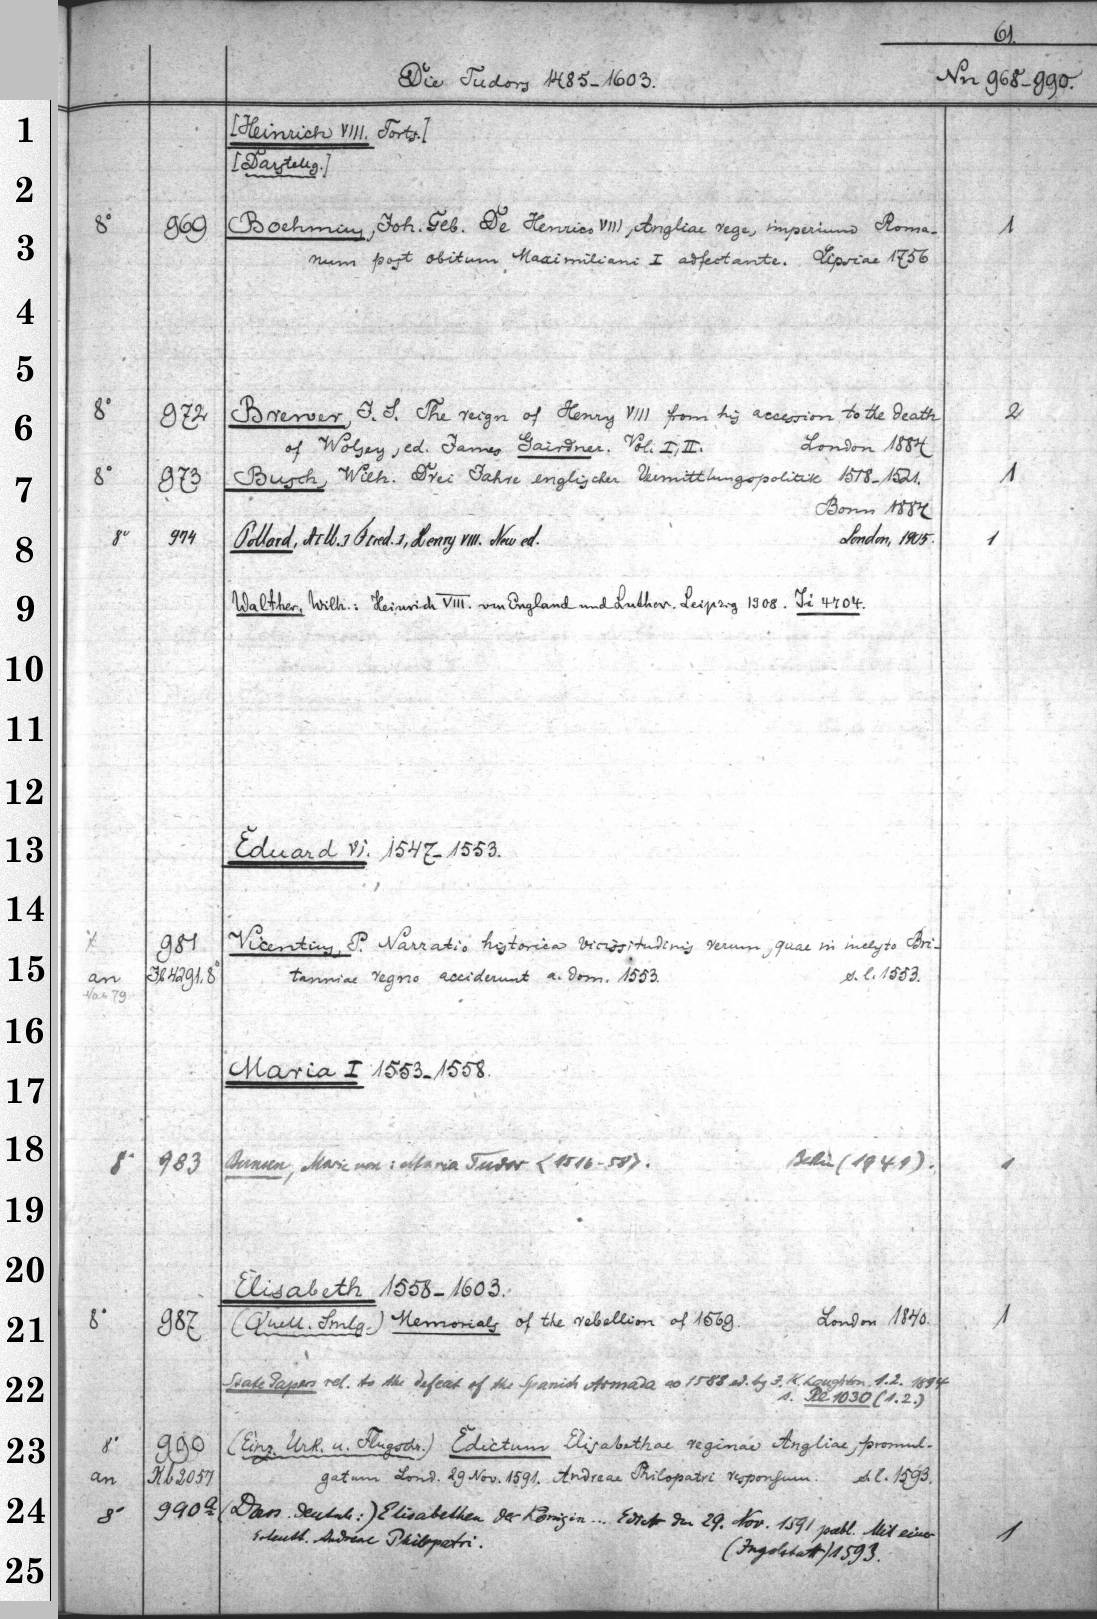 61.
Die Tudors 1485-1603. Nn 968-990.
1
[Heinrich VIII. Forts.]
[Darstellg.]
2
8° 969 Boehmius, Joh. Gtb. De Henrico VIII, Angliae rege, imperium Roma- 1
3
num post obitum Maximiliani I adfectante. Lipsiae 1756
4
5
8° 972 Brewer, J. S. The reign of Henry VIII from his accession to the death 2
6
of Wolsey, ed. James Gairdner. Vol. I, II. London 1884
8° 973 Busch, Wilh. Drei Jahre englischer Vermittlungspolitik 1518-1521. 1
7
Bonn 1884
8° 974 Pollard, A[lb.] F[red.], Henry VIII. New ed. London, 1905. 1
8
9
Walther, Wilh.: Heinrich VIII. von England und Luther. Leipzig 1908. Ji 4704.
10
11
12
13
Eduard VI. 1547-1553.
14
981 Vicentius, P. Narratio historica vicissitudinis rerum, quae in inclyto Bri-
15
an 4291. 8° tanniae regno acciderunt a. dom. 1553. s. l. 1553.
16
Maria I 1553-1558.
17
18
8° 983 Bunsen, Marie von: Maria Tudor <1516-58>. Berlin (1941). 1
19
20
Elisabeth 1558-1603.
8° 987 (Quell. Smlg.) Memorials of the rebellion of 1569. London 1840. 1
21
22
State Papers rel. to the defeat of the Spanish Armada ao 1588 ed. by J. K. Laughton. 1.2. 1894
s. 1030 (1.2.)
23
8° 990 (Einz. Urk. u. Flugschr.) Edictum Elisabethae reginae Angliae, promul-
an Kb 2057 gatum Lond. 29 Nov. 1591. Andreae Philopatri responsum. s. l. 1593.
24
8° 990a (Dass. deutsch:) Elisabethen der Königin ... Edict den 29. Nov. 1591 publ. Mit einer
Erleutt. Andreae Philopatri. (Ingolstatt) 1593. 1
25